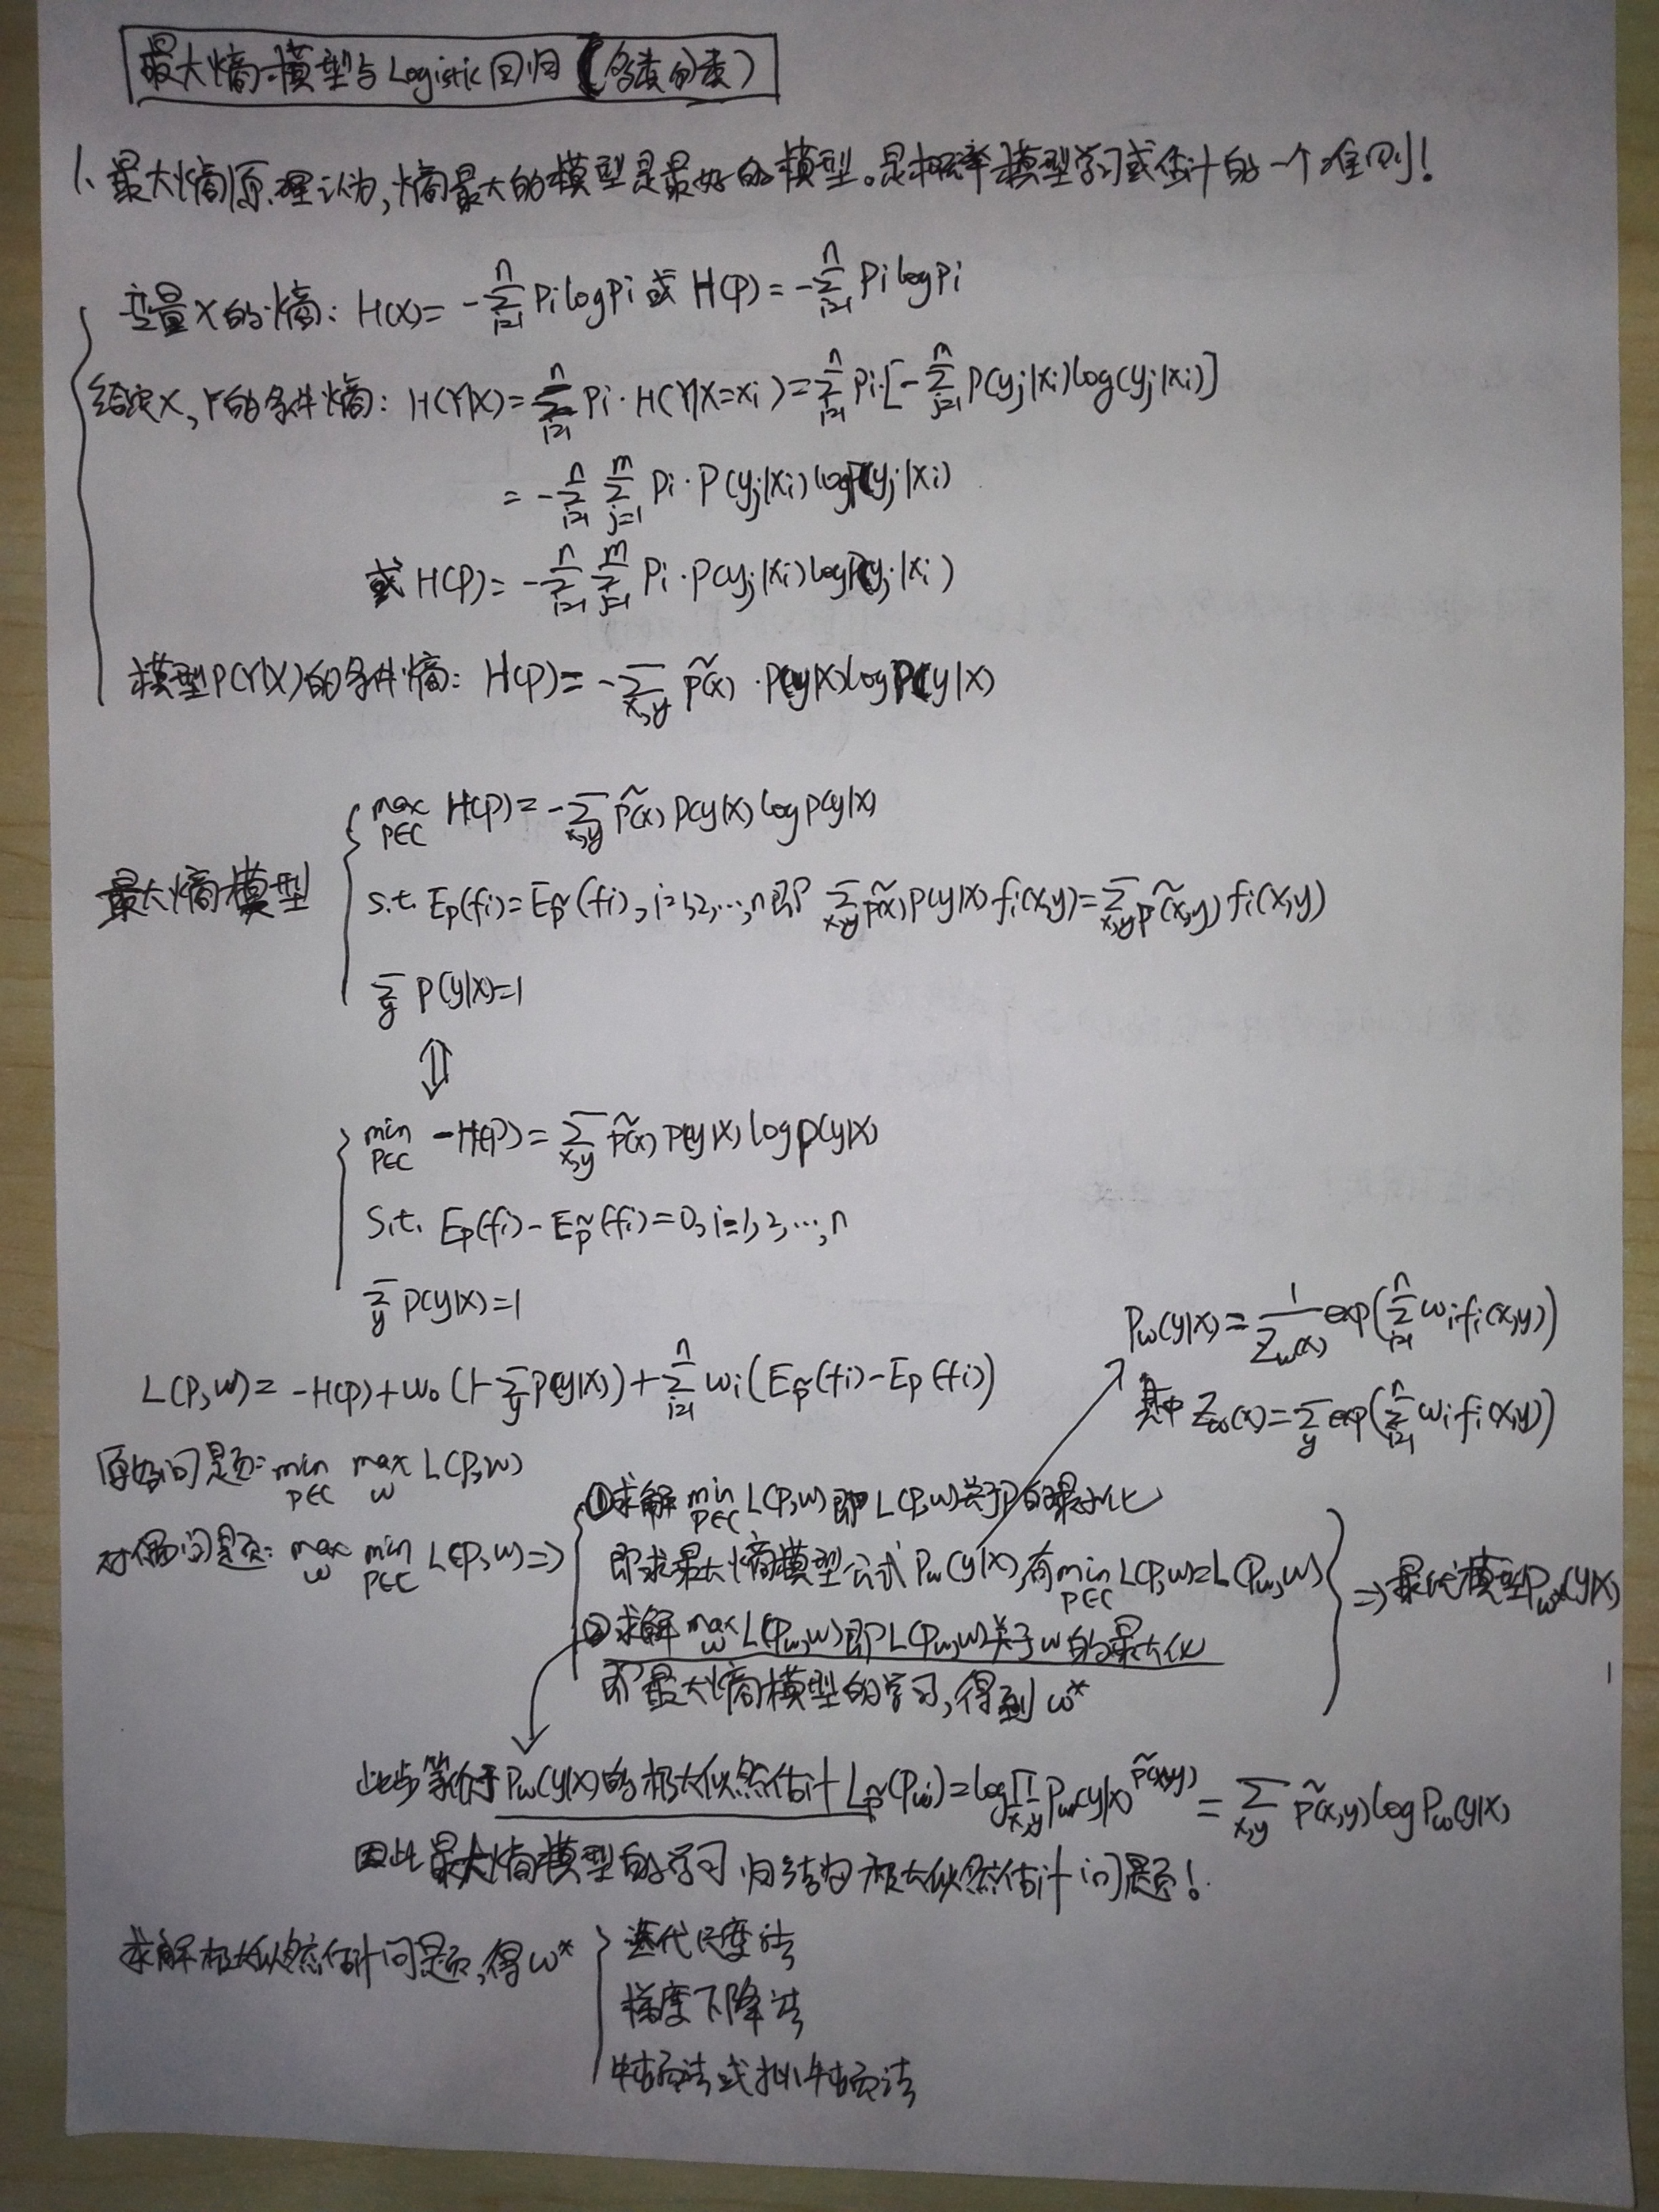 最大熵模型与Logistic回归(多类分类)
1、最大熵原理认为,熵最大的模型是最好的模型。是概率模型学习或估计的一个准则!
变量X的熵: H(X)= -∑_{i=1}^{n} Pi log Pi 或 H(P)= -∑_{i=1}^{n} Pi log Pi
给定X,Y的条件熵: H(Y|X)= ∑_{i=1}^{n} Pi·H(Y|X=xi)= ∑_{i=1}^{n} Pi·[-∑_{j=1}^{m} P(yj|xi) log(yj|xi)]
= -∑_{i=1}^{n} ∑_{j=1}^{m} Pi·P(yj|xi) log P(yj|xi)
或 H(P)= -∑_{i=1}^{n} ∑_{j=1}^{m} Pi·P(yj|xi) log P(yj|xi)
模型P(Y|X)的条件熵: H(P)= -∑_{x,y} P̃(x)·P(y|x) log P(y|x)
max_{P∈C} H(P)= -∑_{x,y} P̃(x) P(y|x) log P(y|x)
最大熵模型
s.t. E_P(fi)=E_P̃(fi), i=1,2,…,n 即 ∑_{x,y} P̃(x) P(y|x) fi(x,y)= ∑_{x,y} P̃(x,y) fi(x,y)
∑_y P(y|x)=1
⇕
min_{P∈C} -H(P)= ∑_{x,y} P̃(x) P(y|x) log P(y|x)
s.t. E_P(fi)-E_P̃(fi)=0, i=1,2,…,n
∑_y P(y|x)=1
P_w(y|x)= 1/Z_w(x) exp(∑_{i=1}^{n} wi fi(x,y))
L(P,w)= -H(P)+w0(1-∑_y P(y|x))+∑_{i=1}^{n} wi(E_P̃(fi)-E_P(fi))
其中 Z_w(x)= ∑_y exp(∑_{i=1}^{n} wi fi(x,y))
原始问题: min_{P∈C} max_w L(P,w)
对偶问题: max_w min_{P∈C} L(P,w) ⇒
①求解 min_{P∈C} L(P,w) 即 L(P,w)关于P的最小化
即求最大熵模型公式 P_w(y|x),有 min_{P∈C} L(P,w)=L(P_w,w)
②求解 max_w L(P_w,w) 即 L(P_w,w)关于w的最大化
即最大熵模型的学习,得到 w*
⇒ 最优模型P_w*(y|x)
此步等价于P_w(y|x)的极大似然估计 L_P̃(P_w)=log∏_{x,y} P_w(y|x)^{P̃(x,y)} = ∑_{x,y} P̃(x,y) log P_w(y|x)
因此最大熵模型的学习归结为极大似然估计问题!
求解极大似然估计问题,得w*
迭代尺度法
梯度下降法
牛顿法或拟牛顿法